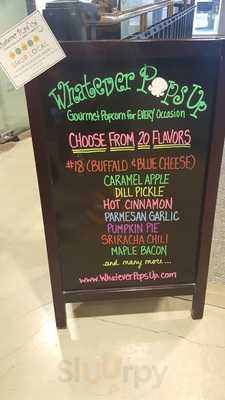 SHOP LOCAL
Whatever Pops Up
Gourmet Popcorn for EVERY Occasion
CHOOSE FROM 20 FLAVORS
#18 (BUFFALO & BLUE CHEESE)
CARAMEL APPLE
DILL PICKLE
HOT CINNAMON
PARMESAN GARLIC
PUMPKIN PIE
SRIRACHA CHILI
MAPLE BACON
and many more...
www.WhateverPopsUp.com
sluurpy